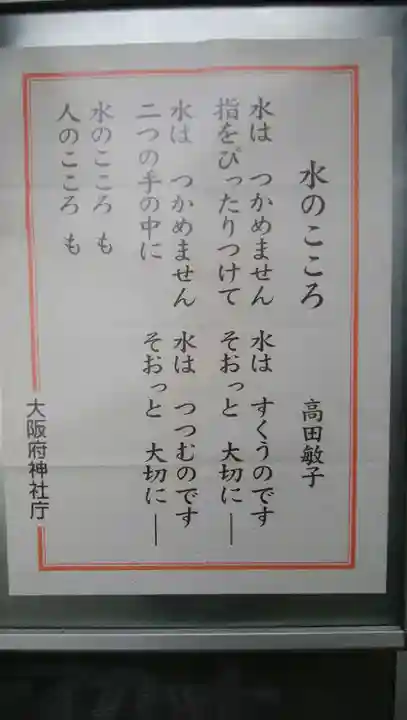 水のこころ 高田敏子
水は つかめません 水は すくうのです
指をぴったりつけて そおっと 大切に――
水は つかめません 水は つつむのです
二つの手の中に そおっと 大切に――
水のこころ も
人のこころ も
大阪府神社庁